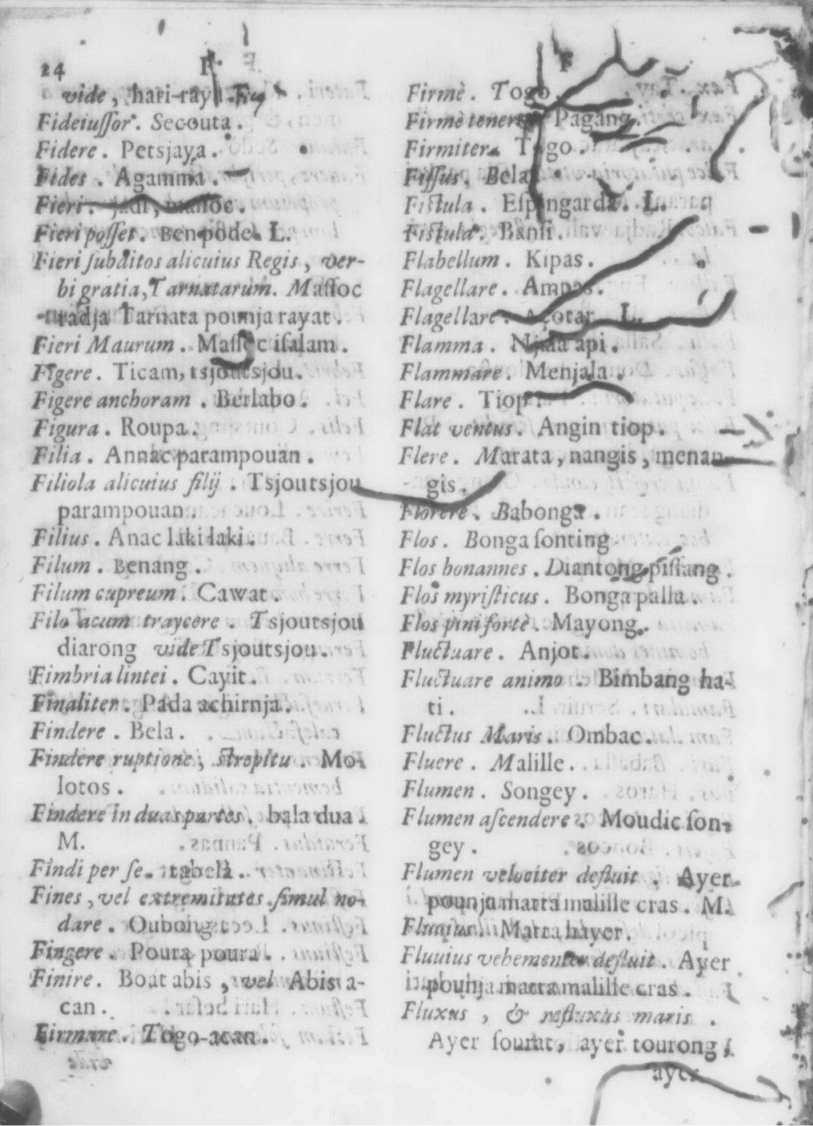 24 F
vide, hari-raya.
Fideiuſſor. Secouta.
Fidere. Petsjaya.
Fides. Agamma.
Fieri. Jadi, maſſoc.
Fieri poſſet. Ben pode. L.
Fieri ſubditos alicuius Regis, ver-
bi gratia, Tarnatarum. Maſſoc
radja Tarnata pounja rayat.
Fieri Maurum. Maſſoc iſalam.
Figere. Ticam, tsjoutsjou.
Figere anchoram. Berlabo.
Figura. Roupa.
Filia. Annac parampouan.
Filiola alicuius filij. Tsjoutsjou
parampouan
Filius. Anac laki laki.
Filum. Benang.
Filum cupreum. Cawat.
Filo acum traycere. Tsjoutsjou
diarong vide Tsjoutsjou.
Fimbria lintei. Cayit.
Finaliter. Pada achirnja.
Findere. Bela.
Findere ruptione, ſtrepitu. Mo-
lotos.
Findere in duas partes. bala dua.
M.
Findi per ſe. tabela.
Fines, vel extremitates ſimul no-
dare. Oubong
Fingere. Poura poura.
Finire. Boat abis, vel Abis a-
can.
Firmare. Togo-acan.
F
Firmè. Togo.
Firmè tenere. Pagang.
Firmiter. Togo.
Fiſſus. Bela.
Fiſtula. Eſpingarda. L.
Fiſtula. Banſi.
Flabellum. Kipas.
Flagellare. Ampas.
Flagellare. Açotar. L.
Flamma. Njala api.
Flammare. Menjala.
Flare. Tiop.
Flat ventus. Angin tiop.
Flere. Marata, nangis, menan-
gis.
Florere. Babonga.
Flos. Bonga ſonting
Flos bonannes. Diantong piſſang.
Flos myriſticus. Bonga palla.
Flos pini fortè. Mayong.
Fluctuare. Anjot.
Fluctuare animo. Bimbang ha-
ti.
Fluctus Maris. Ombac.
Fluere. Malille.
Flumen. Songey.
Flumen aſcendere. Moudic ſon-
gey.
Flumen velociter defluit. Ayer
pounja matta malille cras. M.
Fluuius. Matta hayer.
Fluuius vehementer defluit. Ayer
pounja matta malille cras.
Fluxus, & refluxus maris.
Ayer ſourut, ayer tourong,
ayer